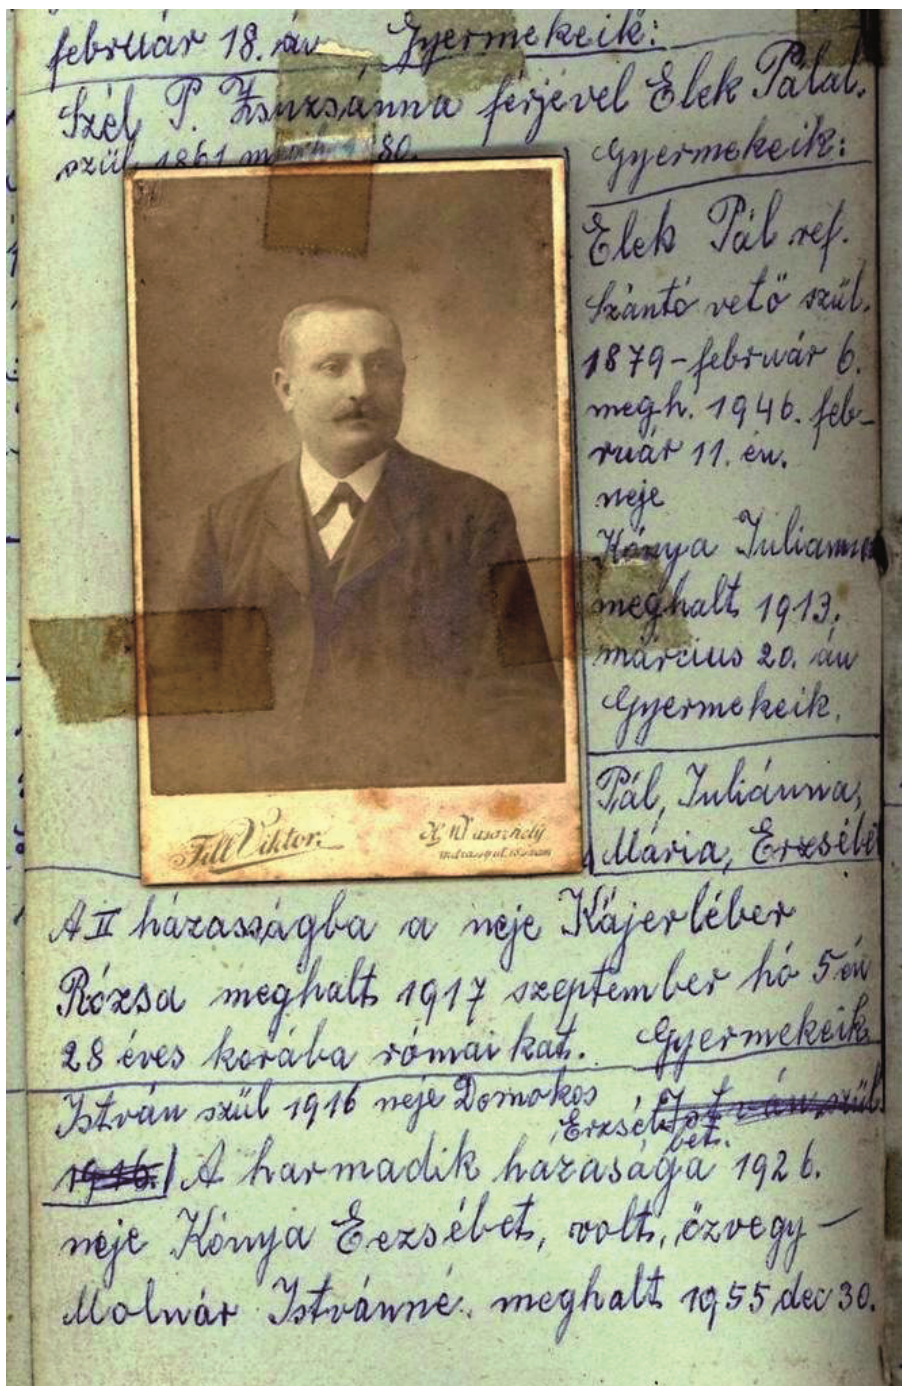 február 18.án, Gyermekeik:
Szél P. Zsuzsanna férjével Elek Pálal.
szül. 1861 80.
Gyermekeik:
Elek Pál ref.
Szántó vető szül.
1879-február 6.
megh. 1946. feb-
ruár 11. én.
neje
Kónya Julianna
meghalt 1913.
március 20. án
Gyermekeik.
Pál, Juliánna,
Mária, Erzsébe
Fill Viktor.
H. M. Vásárhely
A II házasságba a neje Kájerléber
Rózsa meghalt 1917 szeptember hó 5 én
28 éves korába római kat. Gyermekeik
István szül 1916 neje Domokos , István szül
Erzsébet.
1916. A harmadik házasága 1926.
neje Kónya Eezsébet, volt, özvegy -
Molnár Istvánné. meghalt 1955 dec 30.